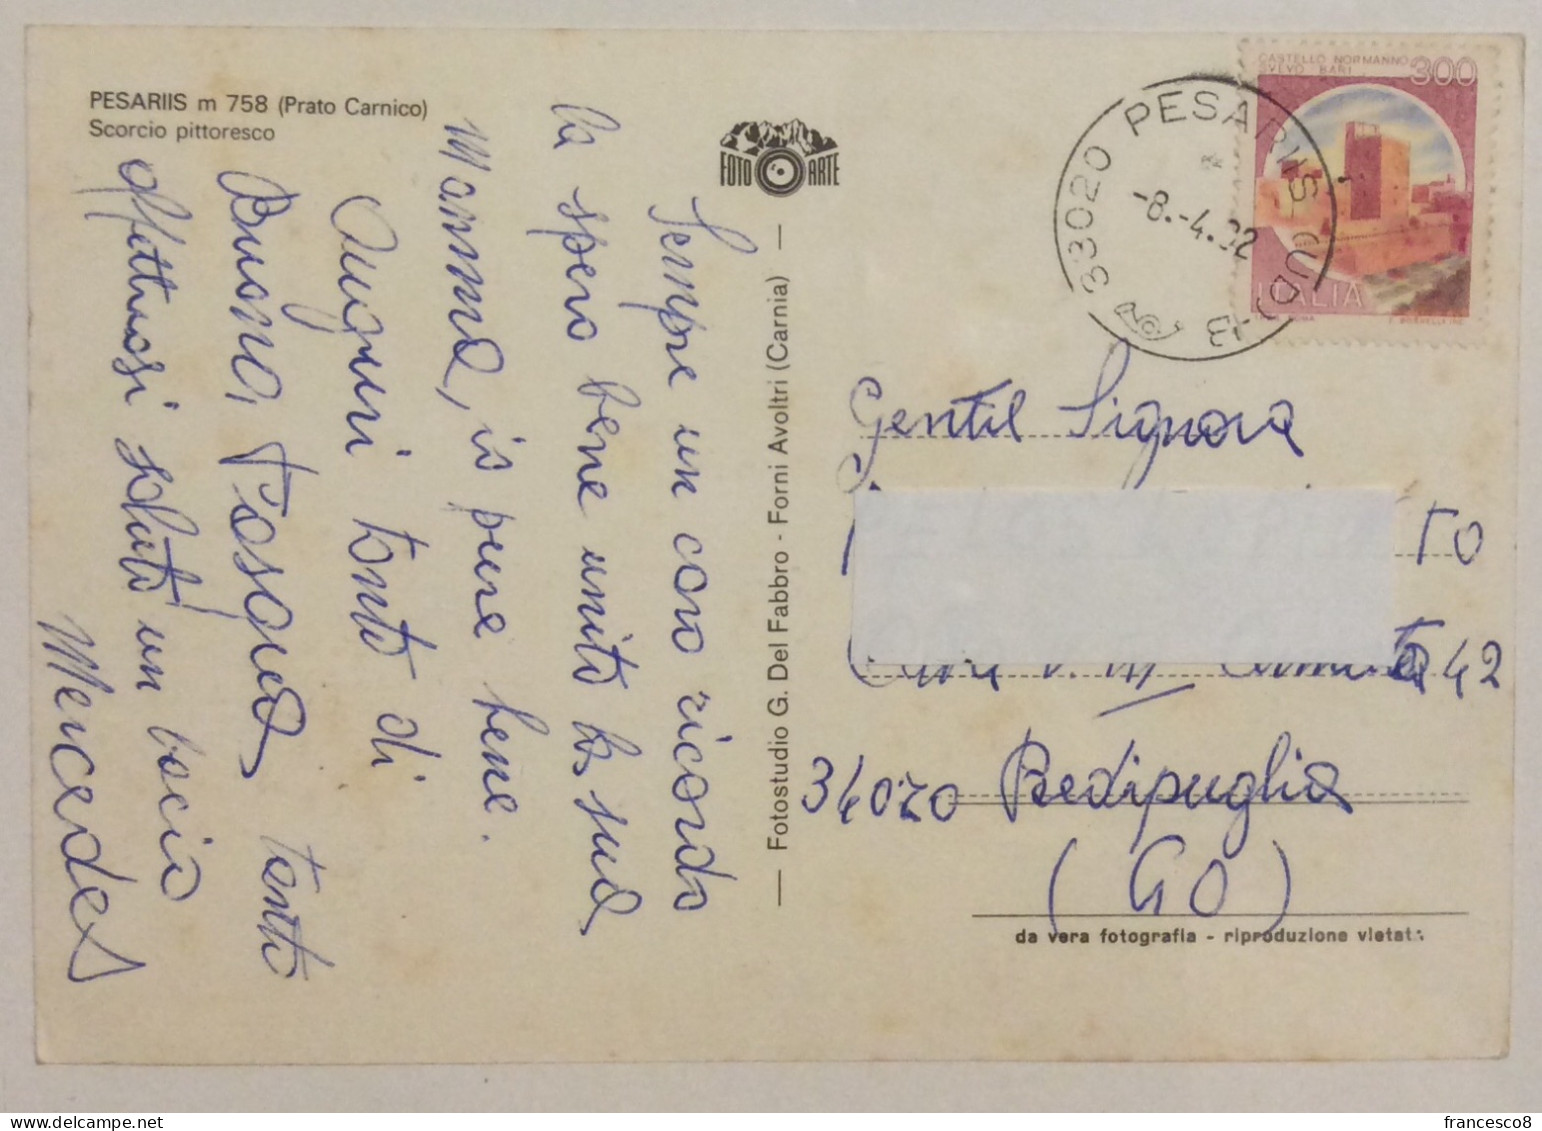 PESARIIS m 758 (Prato Carnico)
Scorcio pittoresco
FOTO ARTE
Sempre un caro ricordo
la spero bene unita la sua
Mamma, io pure bene.
Auguri tanto di
Buona Pasqua tanto
affettuosi saluti un bacio
Mercedes
— Fotostudio G. Del Fabbro - Forni Avoltri (Carnia) —
CASTELLO NORMANNO
SVEVO BARI
300
ITALIA
33020 PESARIIS (UD)
-8.-4.92
Gentil Signora
TO
42
34070 Redipuglia
(GO)
da vera fotografia - riproduzione vietata
francesco8